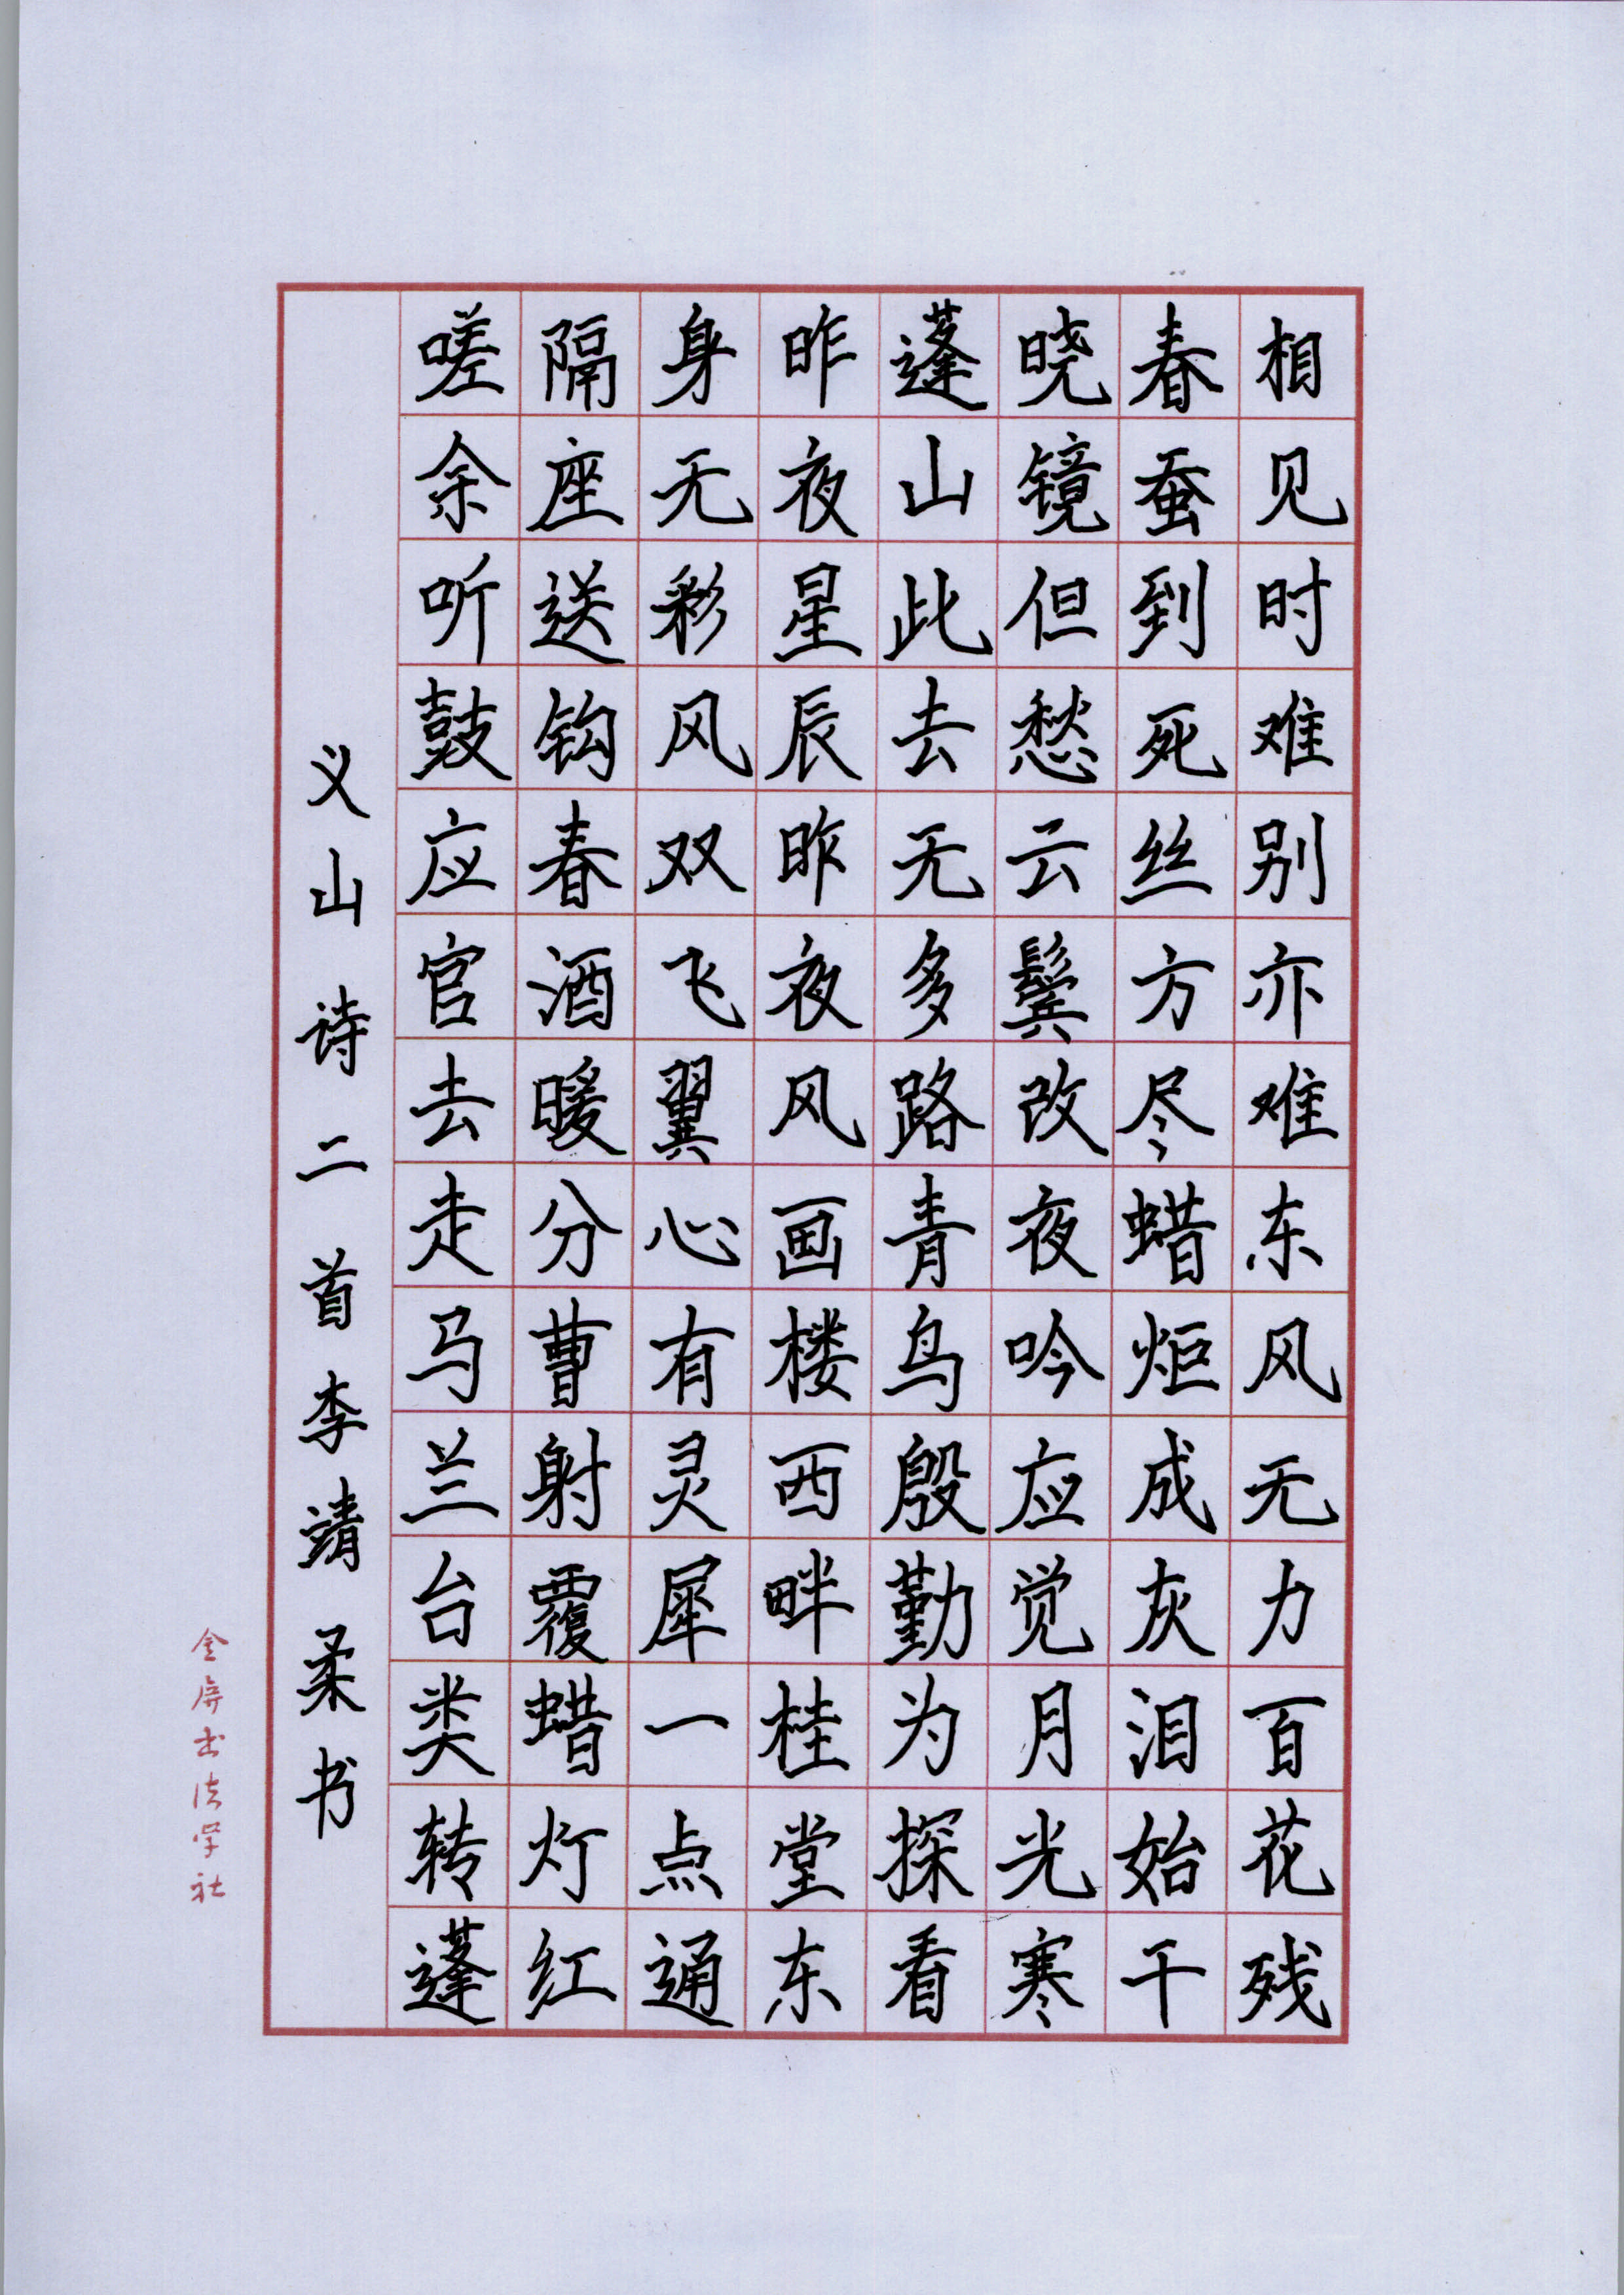 相见时难别亦难东风无力百花残
春蚕到死丝方尽蜡炬成灰泪始干
晓镜但愁云鬓改夜吟应觉月光寒
蓬山此去无多路青鸟殷勤为探看
昨夜星辰昨夜风画楼西畔桂堂东
身无彩风双飞翼心有灵犀一点通
隔座送钩春酒暖分曹射覆蜡灯红
嗟余听鼓应官去走马兰台类转蓬
义山诗二首李靖柔书
金屏书法学社